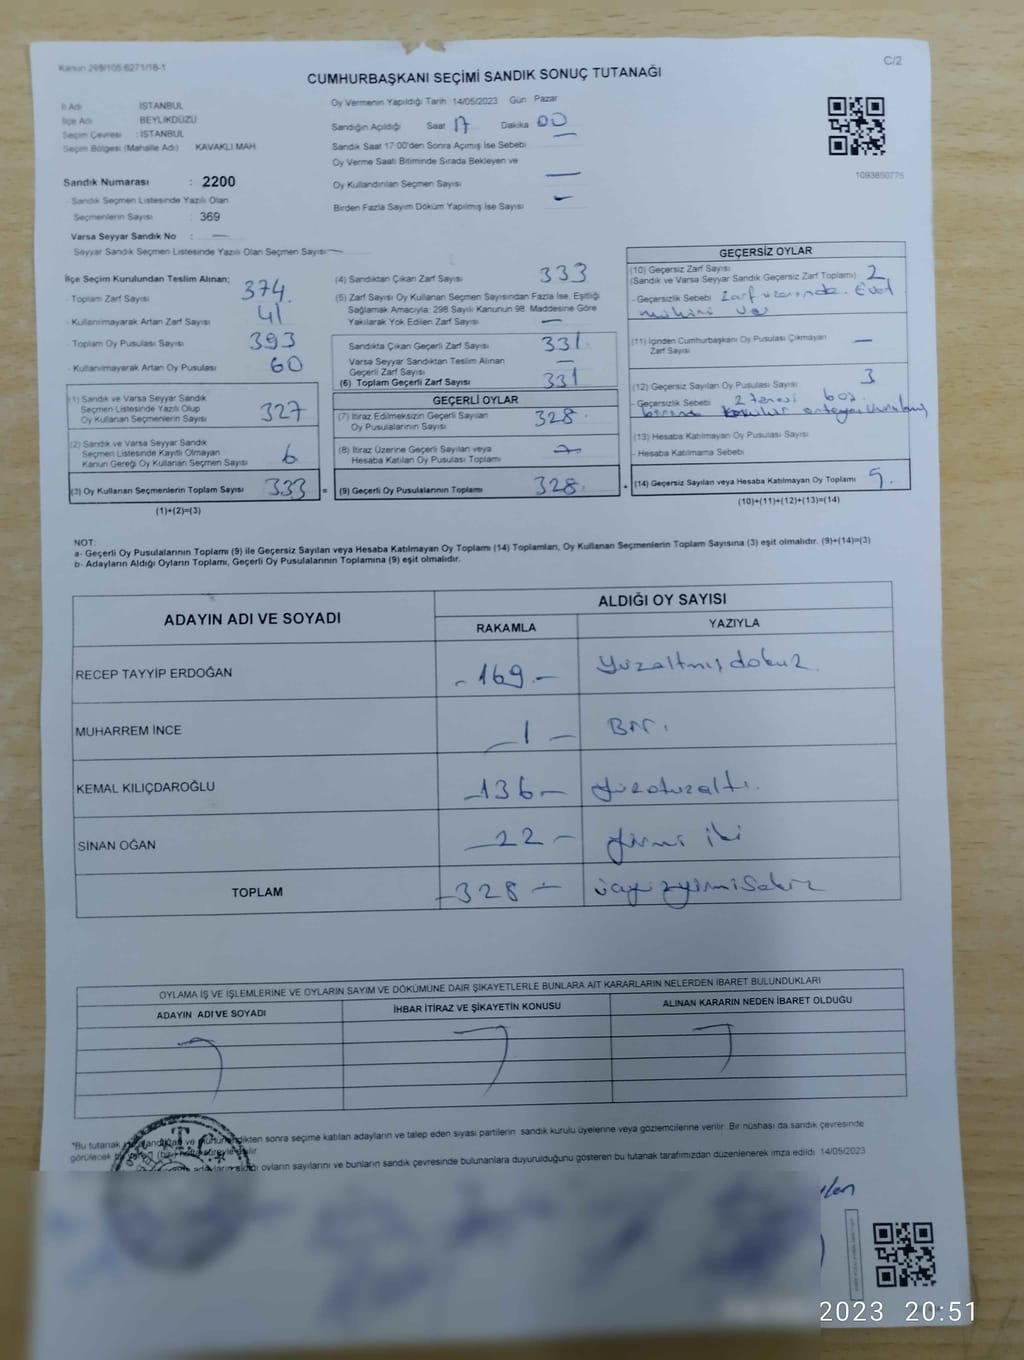 Kanun 298/105.6271/16-1
C/2
CUMHURBAŞKANI SEÇİMİ SANDIK SONUÇ TUTANAĞI
İl Adı İSTANBUL
İlçe Adı BEYLİKDÜZÜ
Seçim Çevresi : İSTANBUL
Seçim Bölgesi (Mahalle Adı) KAVAKLI MAH
Sandık Numarası : 2200
- Sandık Seçmen Listesinde Yazılı Olan
Seçmenlerin Sayısı : 369
Varsa Seyyar Sandık No : —
Seyyar Sandık Seçmen Listesinde Yazılı Olan Seçmen Sayısı —
Oy Vermenin Yapıldığı Tarih 14/05/2023 Gün Pazar
Sandığın Açıldığı Saat 17 Dakika 00
Sandık Saat 17:00'den Sonra Açmış İse Sebebi —
Oy Verme Saati Bitiminde Sırada Bekleyen ve
Oy Kullandırılan Seçmen Sayısı —
Birden Fazla Sayım Döküm Yapılmış İse Sayısı —
1093850775
İlçe Seçim Kurulundan Teslim Alınan;
- Toplam Zarf Sayısı 374
- Kullanılmayarak Artan Zarf Sayısı 41
- Toplam Oy Pusulası Sayısı 393
- Kullanılmayarak Artan Oy Pusulası 60
(1) Sandık ve Varsa Seyyar Sandık
Seçmen Listesinde Yazılı Olup
Oy Kullanan Seçmenlerin Sayısı 327
(2) Sandık ve Varsa Seyyar Sandık
Seçmen Listesinde Kayıtlı Olmayan
Kanun Gereği Oy Kullanan Seçmen Sayısı 6
(3) Oy Kullanan Seçmenlerin Toplam Sayısı 333 =
(1)+(2)=(3)
(4) Sandıktan Çıkan Zarf Sayısı 333
(5) Zarf Sayısı Oy Kullanan Seçmen Sayısından Fazla İse, Eşitliği
Sağlamak Amacıyla; 298 Sayılı Kanunun 98. Maddesine Göre
Yakılarak Yok Edilen Zarf Sayısı —
Sandıkta Çıkan Geçerli Zarf Sayısı 331
Varsa Seyyar Sandıktan Teslim Alınan
Geçerli Zarf Sayısı —
(6) Toplam Geçerli Zarf Sayısı 331
GEÇERLİ OYLAR
(7) İtiraz Edilmeksizin Geçerli Sayılan
Oy Pusulalarının Sayısı 328
(8) İtiraz Üzerine Geçerli Sayılan veya
Hesaba Katılan Oy Pusulası Toplamı
(9) Geçerli Oy Pusulalarının Toplamı 328 +
GEÇERSİZ OYLAR
(10) Geçersiz Zarf Sayısı
(Sandık ve Varsa Seyyar Sandık Geçersiz Zarf Toplamı) 2
- Geçersizlik Sebebi Zarf üzerinde Evet
mührü var
(11) İçinden Cumhurbaşkanı Oy Pusulası Çıkmayan
Zarf Sayısı —
(12) Geçersiz Sayılan Oy Pusulası Sayısı 3
- Geçersizlik Sebebi 2 tanesi boş
birinde
(13) Hesaba Katılmayan Oy Pusulası Sayısı
- Hesaba Katılmama Sebebi
(14) Geçersiz Sayılan veya Hesaba Katılmayan Oy Toplamı 5
(10)+(11)+(12)+(13)=(14)
NOT:
a- Geçerli Oy Pusulalarının Toplamı (9) ile Geçersiz Sayılan veya Hesaba Katılmayan Oy Toplamı (14) Toplamları, Oy Kullanan Seçmenlerin Toplam Sayısına (3) eşit olmalıdır. (9)+(14)=(3)
b- Adayların Aldığı Oyların Toplamı, Geçerli Oy Pusulalarının Toplamına (9) eşit olmalıdır.
ADAYIN ADI VE SOYADI
ALDIĞI OY SAYISI
RAKAMLA YAZIYLA
RECEP TAYYİP ERDOĞAN - 169 - Yüzaltmışdokuz
MUHARREM İNCE - 1 - Bir.
KEMAL KILIÇDAROĞLU - 136 - yüzotuzaltı.
SİNAN OĞAN - 22 - yirmi iki
TOPLAM - 328 - üçyüzyirmisekiz
OYLAMA İŞ VE İŞLEMLERİNE VE OYLARIN SAYIM VE DÖKÜMÜNE DAİR ŞİKAYETLERLE BUNLARA AİT KARARLARIN NELERDEN İBARET BULUNDUKLARI
ADAYIN ADI VE SOYADI İHBAR İTİRAZ VE ŞİKAYETİN KONUSU ALINAN KARARIN NEDEN İBARET OLDUĞU
"Bu tutanak ve sonra seçime katılan adayların ve talep eden siyasi partilerin sandık kurulu üyelerine veya gözlemcilerine verilir. Bir nüshası da sandık çevresinde
görülecek
oyların sayılarını ve bunların sandık çevresinde bulunanlara duyurulduğunu gösteren bu tutanak tarafımızdan düzenlenerek imza edildi. 14/05/2023
T.C.
2023 20:51